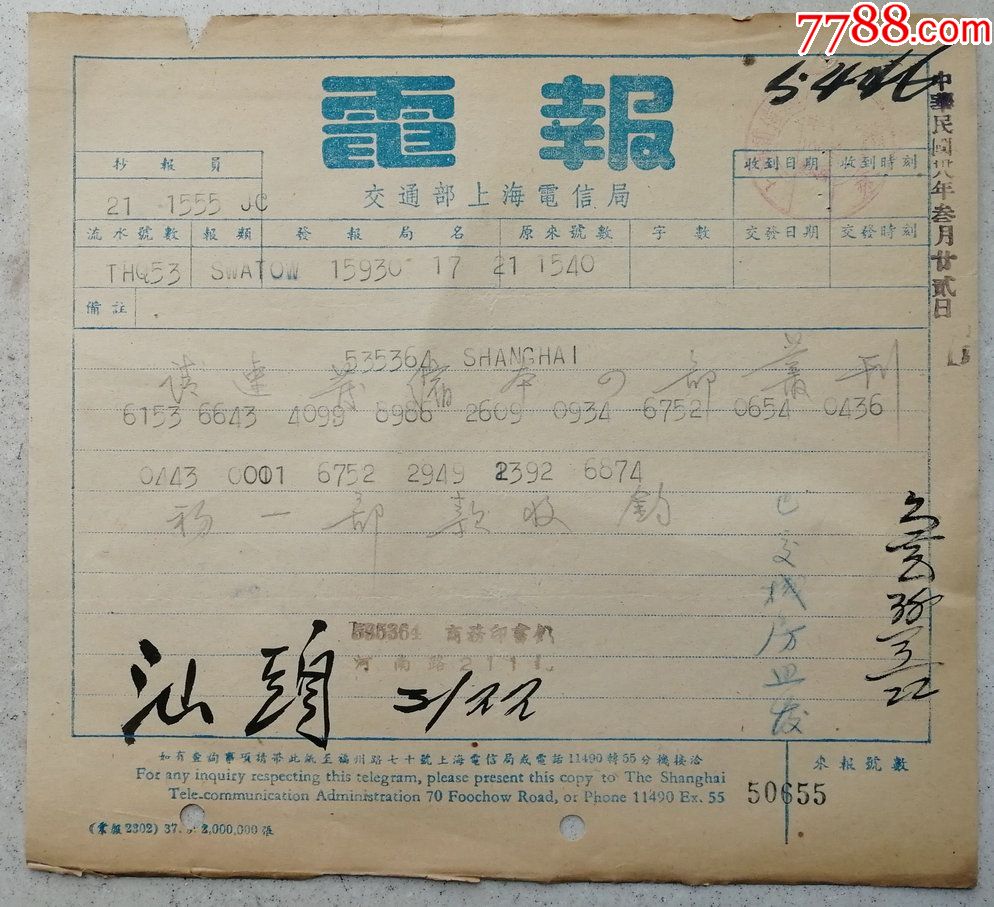 7788.com
5.446
中華民國卅八年叁月廿貳日
電報
交通部上海電信局
抄報員
收到日期 收到時刻
21 1555 JC
流水號數 報類 發報局名 原來號數 字數 交發日期 交發時刻
THQ53 SWATOW 15930 17 21 1540
備註
535364 SHANGHAI
請速 儲本 部叢刊
6153 6643 4099 8986 2609 0934 6752 0654 0436
0443 0001 6752 2949 2392 6874
初一部款收鈞
已交棧房
535364 商務印書館
河南路211
汕頭 3/22
3/22
如有查詢事項携帶此紙至福州路七十號上海電信局或電話11490轉55分機接洽
For any inquiry respecting this telegram, please present this copy to The Shanghai
Tele-communication Administration 70 Foochow Road, or Phone 11490 Ex. 55
來報號數
50655
(業報2302) 37. 2,000,000張